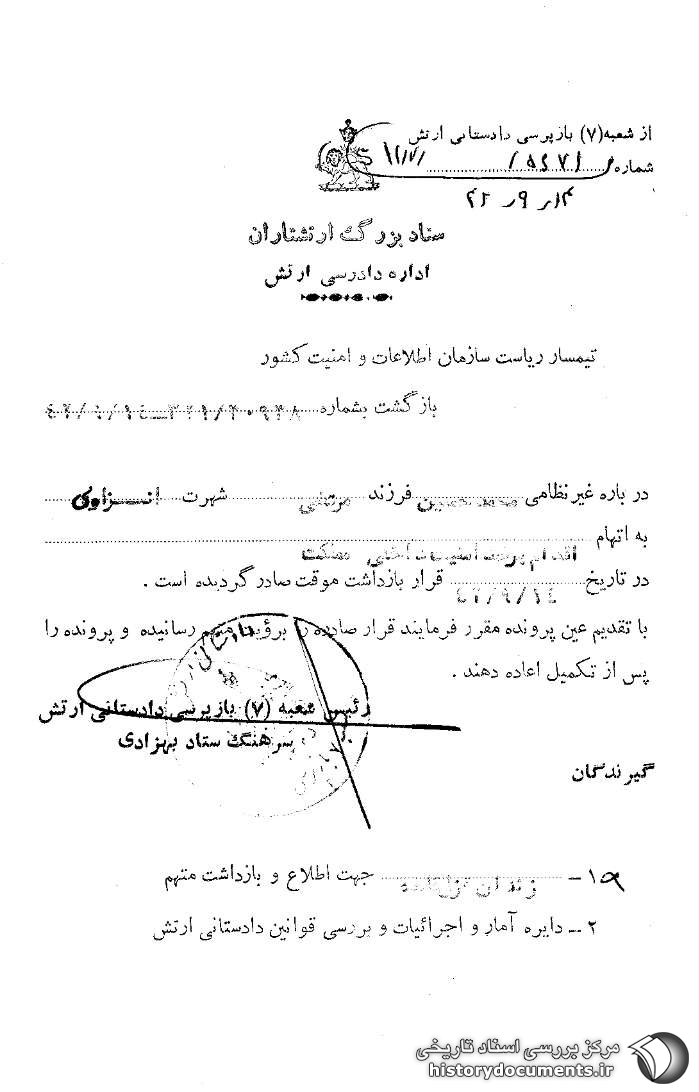 از شعبه (۷) بازپرسی دادستانی ارتش
شماره
ستاد بزرگ ارتشتاران
اداره دادرسی ارتش
تیمسار ریاست سازمان اطلاعات و امنیت کشور
بازگشت بشماره
در باره غیرنظامی محمد حسین فرزند مرتضی شهرت انزاوی
به اتهام اقدام برضد امنیت داخلی مملکت
در تاریخ ۴۲/۹/۱۴ قرار بازداشت موقت صادر گردیده است .
با تقدیم عین پرونده مقرر فرمایند قرار صادره را برؤیت متهم رسانیده و پرونده را
پس از تکمیل اعاده دهند .
رئیس شعبه (۷) بازپرسی دادستانی ارتش
سرهنگ ستاد بهزادی
گیرندگان
۱ – زندان قزل قلعه جهت اطلاع و بازداشت متهم
۲ – دایره آمار و اجرائیات و بررسی قوانین دادستانی ارتش
مرکز بررسی اسناد تاریخی
historydocuments.ir